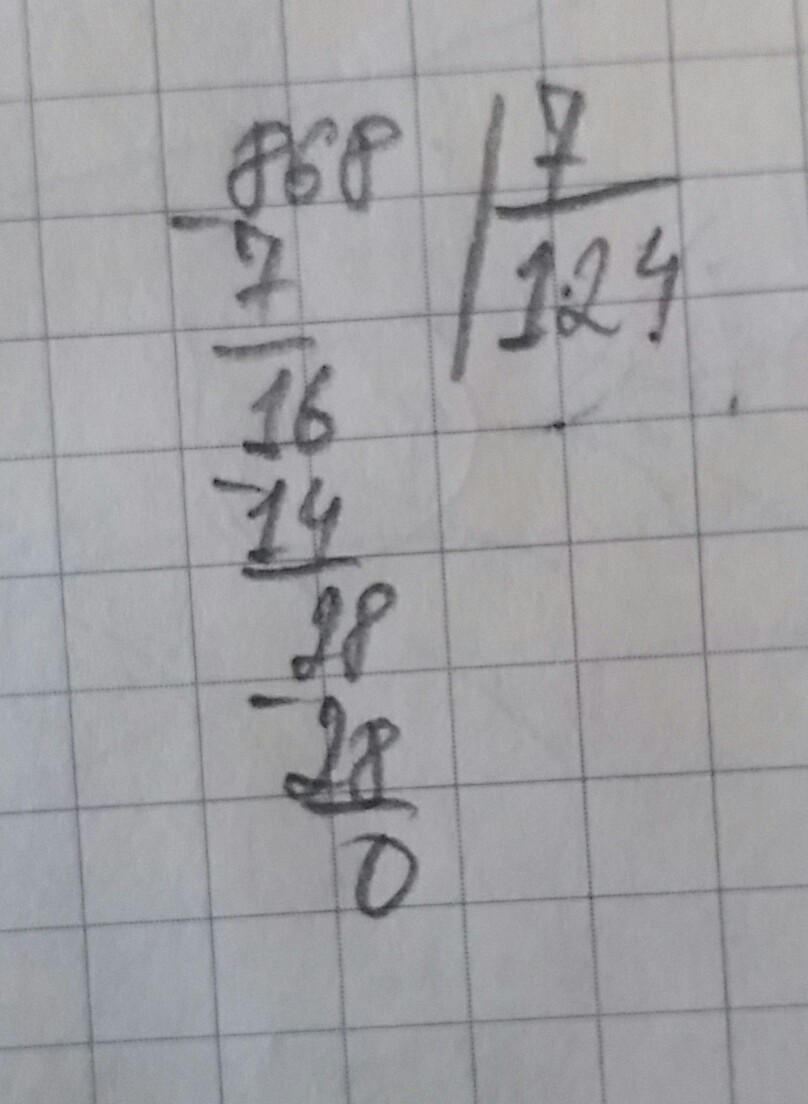 868 | 7
- 7 124
16
- 14
28
- 28
0